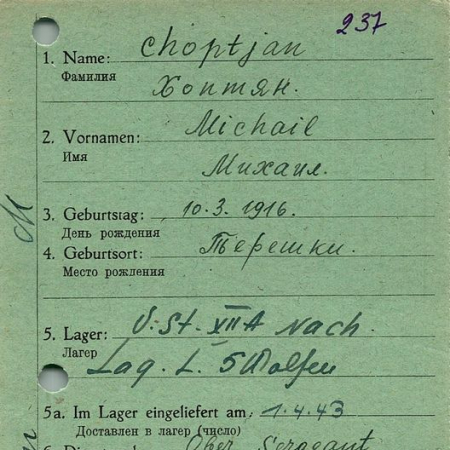 237
1. Name: Choptjan
Фамилия
Хоптян.
2. Vornamen: Michail
Имя
Михаил.
3. Geburtstag: 10.3.1916.
День рождения
4. Geburtsort: Терешки.
Место рождения
5. Lager: V. St. XII A nach.
Лагер
Lag. L. 5 Wolfen
5a. Im Lager eingeliefert am: 1.4.43
Доставлен в лагер (число)
Ober Sergeant
M